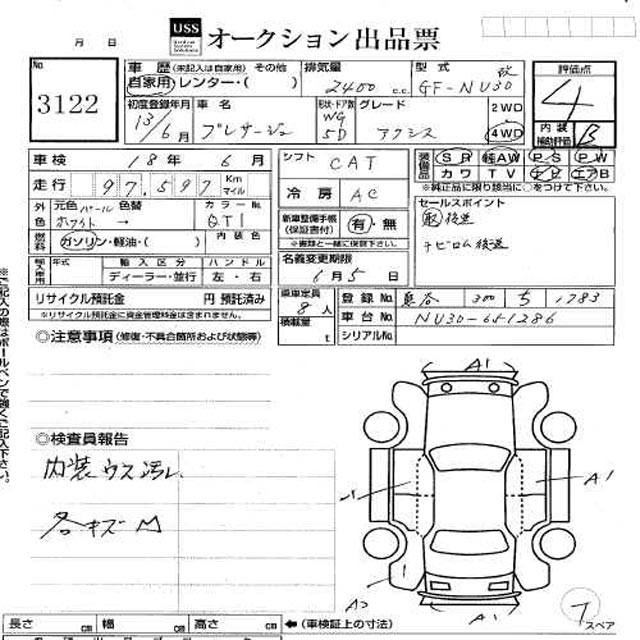 月 日
USS オークション出品票
No.
3122
車歴 (未記入は自家用) その他
自家用 レンター・( )
排気量
2400 c.c.
型式
GF-NU30 改
評価点
4
内装
補助評価 B
初度登録年月
13/6月
車名
プレサージュ
形状・ドア数
WG
5D
グレード
アクシス
2WD
4WD
車検 18年 6月
走行 97,597 Km マイル
外色 元色 パール 色替
ホワイト →
カラーNo.
QT1
燃料 ガソリン・軽油・( )
内装色
輸入車用 年式 輸入区分 ハンドル
ディーラー・並行 左・右
リサイクル預託金 円 預託済み
※リサイクル預託金に資金管理料金は含まれません。
シフト CAT
冷房 AC
新車整備手帳
(保証書付) 有・無
※書類と一緒に保管下さい。
名義変更期限
6月5日
乗車定員
8人
積載量 t
装備品 SR 純AW PS PW
カワ TV ナビ エアB
※純正品に限り該当に○をつけて下さい。
セールスポイント
取後送
ナビロム後送
登録No. 300 ち 1783
車台No. NU30-651286
シリアルNo.
◎注意事項 (修復・不具合箇所および状態等)
◎検査員報告
内装ウス汚レ
各キズM
A1
A1
A2
A1
スペア
長さ cm 幅 cm 高さ cm ←(車検証上の寸法)
※ご記入の際はボールペンで強くご記入下さい。